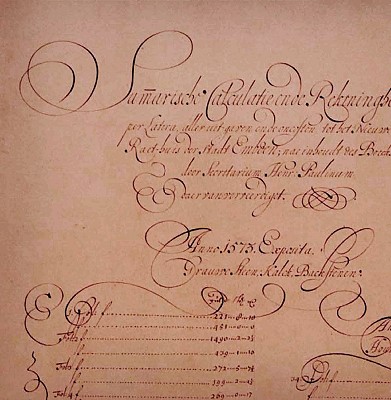 Sam̄arische Calculatie ende Rekninghe
per Latera, aller uit gaven ende oncosten, tot het Nieuwe
Raet-huis der Stadt Embden, na inhoudt des Boecks
door Secretarium Henr. Paulinum
daer van vereerdiget.
Anno 1575. Exposita.
Grauwe Steen, Kalck, Backstenen
221-8-10
451-0-0
Folio f 1490-2-2½
439-1-10
Fol: f 272-5-7½
199-2-2½
Fol. 4 f 209-8-5